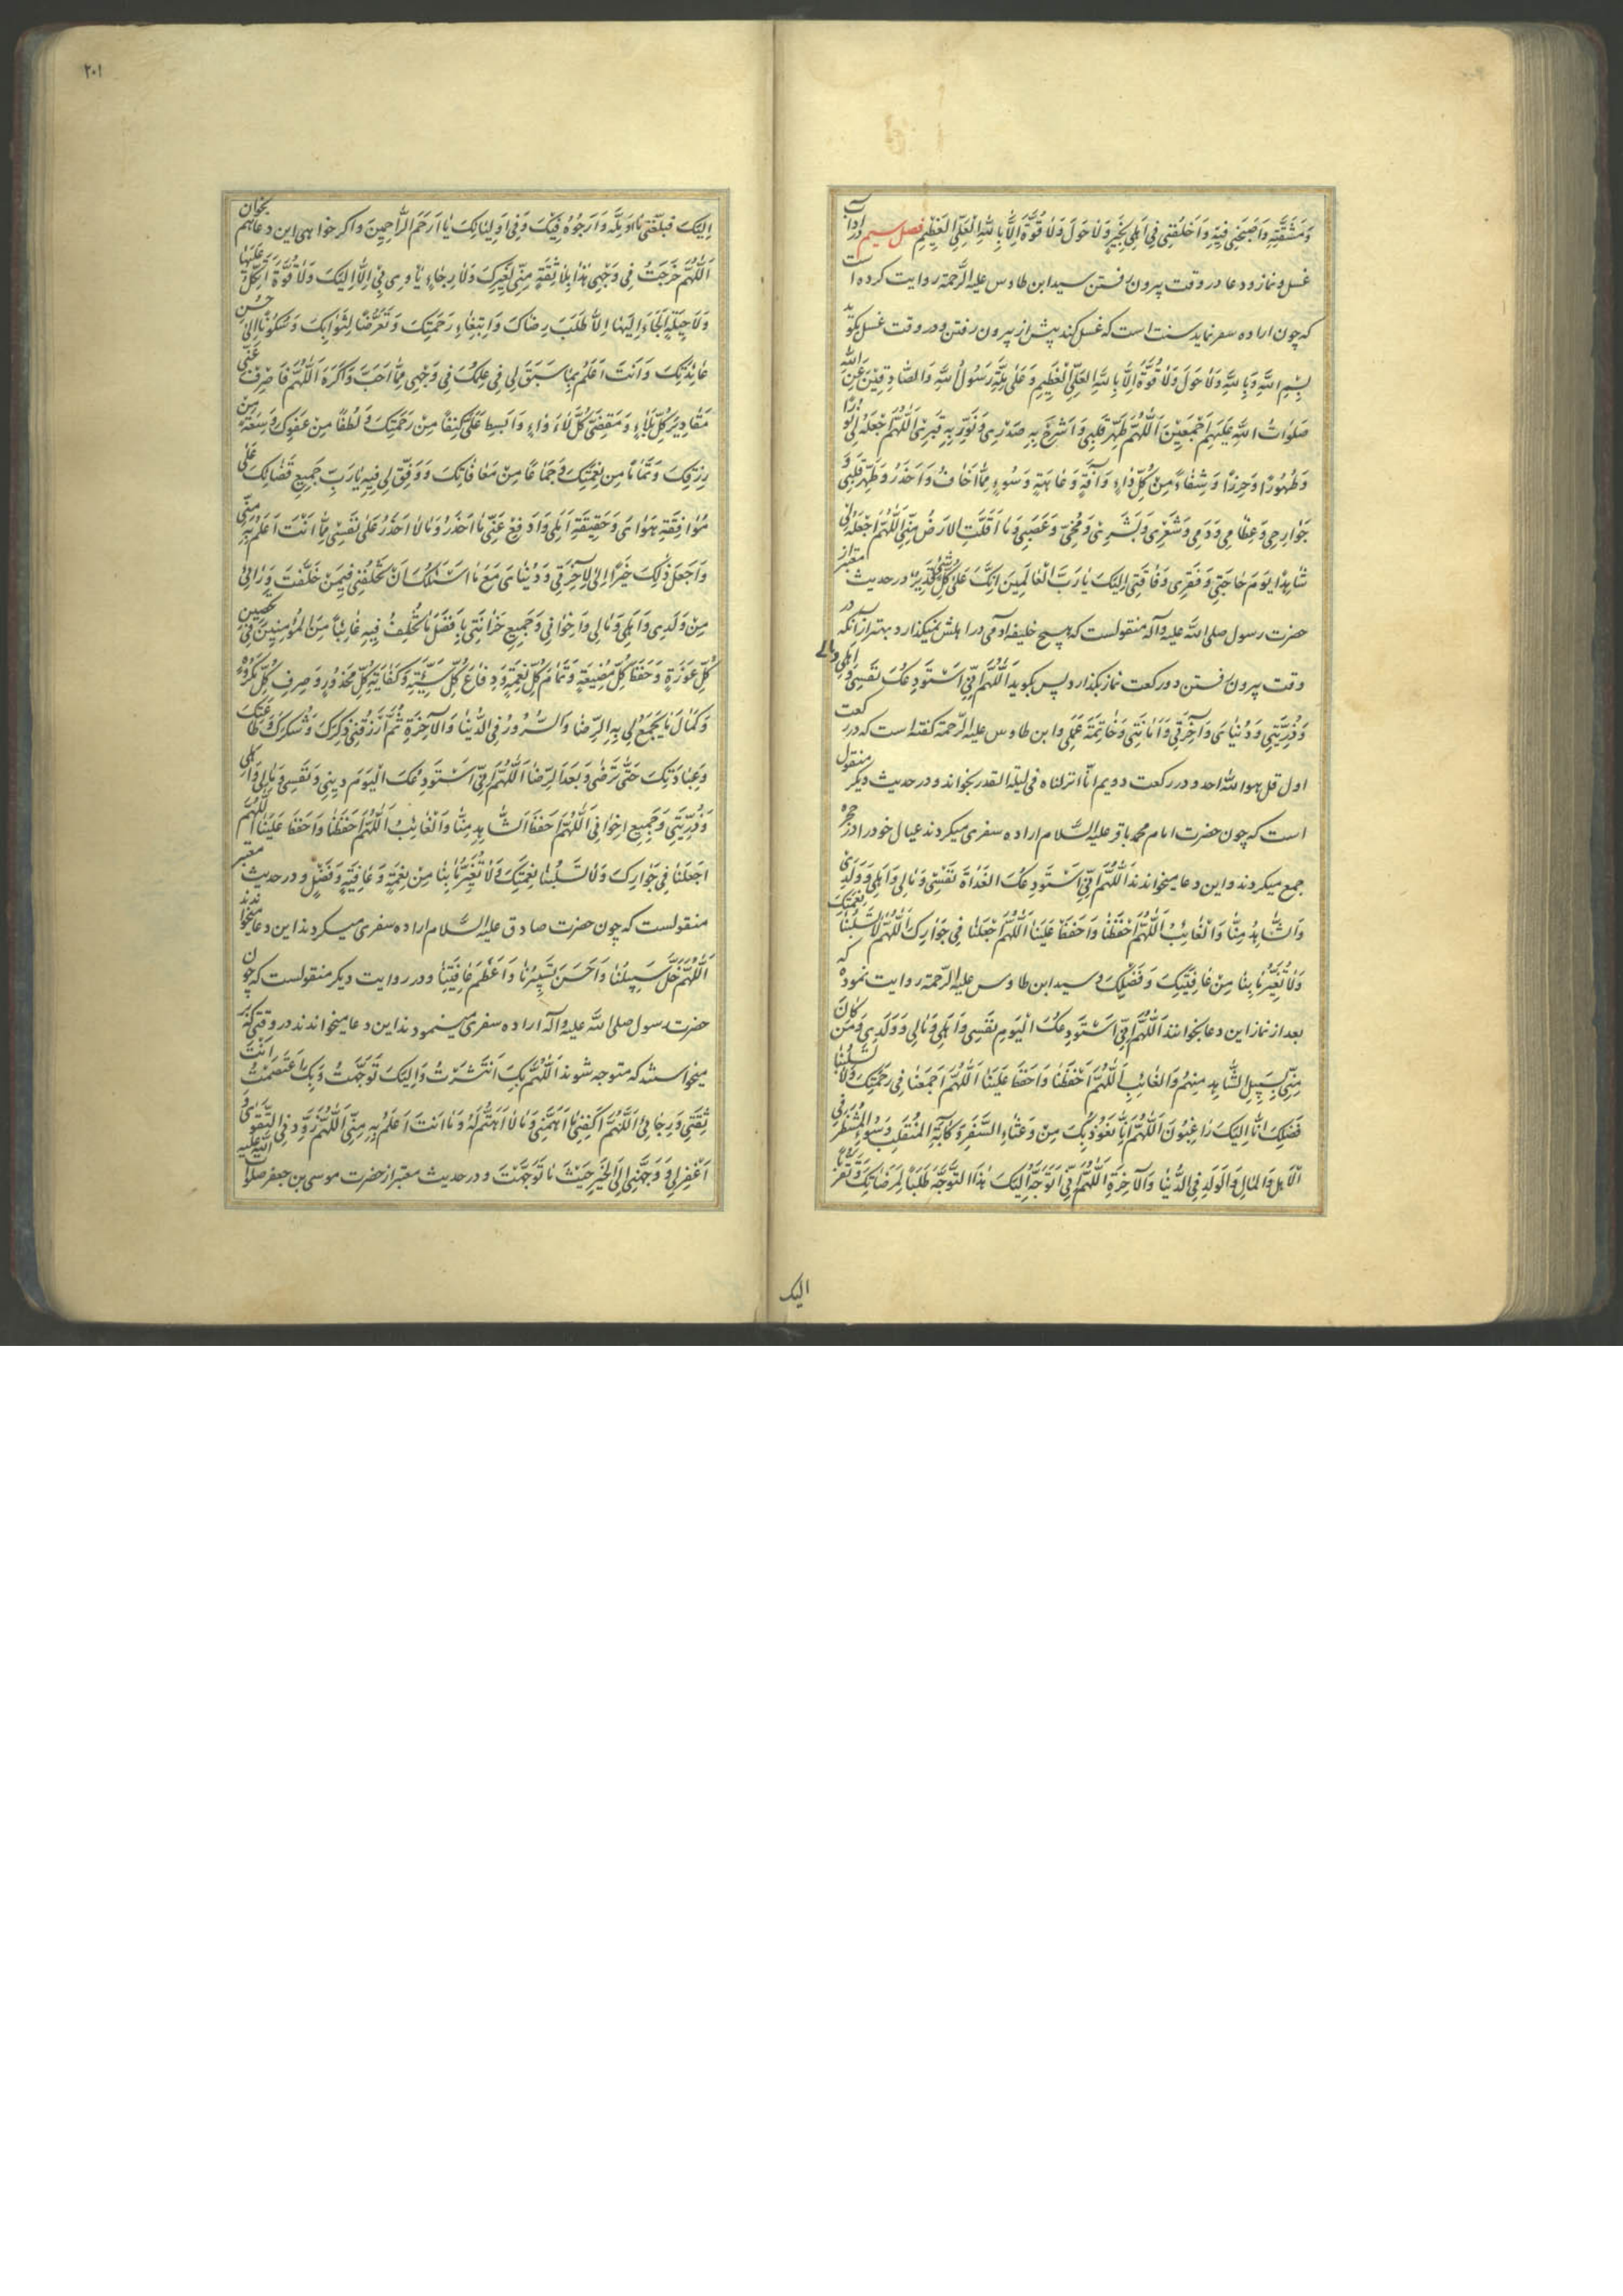 وَمَشَقَّتِهِ وَاَصْحِبْنِی فِیهِ وَاَخْلِفْنِی فِی اَهْلِی بِخَیْرٍ وَلا حَوْلَ وَلا قُوَّةَ اِلّا بِاللهِ الْعَلِیِّ الْعَظِیْمِ فصل سیم در آداب
غسل و نماز و دعا در وقت بیرون رفتن سید ابن طاوس علیه الرحمة روایت کرده است
که چون اراده سفر نماید سنت است که غسل کند پیش از بیرون رفتن و در وقت غسل بکوید
بِسْمِ اللهِ وَبِاللهِ وَلا حَوْلَ وَلا قُوَّةَ اِلّا بِاللهِ الْعَلِیِّ الْعَظِیمِ وَعَلی مِلَّةِ رَسُولِ اللهِ وَالصّادِقِیْنَ عَنِ اللهِ
صَلَواتُ اللهِ عَلَیْهِمْ اَجْمَعِیْنَ اَللّهُمَّ طَهِّرْ قَلْبِی وَاشْرَحْ بِهِ صَدْرِی وَنَوِّرْ بِهِ قَبْرِی اَللّهُمَّ اجْعَلْهُ لِی نُورًا
وَطَهُورًا وَحِرْزًا وَشِفاءً مِنْ کُلِّ داءٍ وَآفَةٍ وَعاهَةٍ وَسُوءٍ مِمّا اَخافُ وَاَحْذَرُ وَطَهِّرْ قَلْبِی وَ
جَوارِحِی وَعِظامِی وَدَمِی وَشَعْرِی وَبَشَرِی وَمُخِّی وَعَصَبِی وَما اَقَلَّتِ الاَرْضُ مِنِّی اَللّهُمَّ اجْعَلْهُ لِی
شاهِدًا یَوْمَ حاجَتِی وَفَقْرِی وَفاقَتِی اِلَیْکَ یا رَبَّ الْعالَمِینَ اِنَّکَ عَلی کُلِّ شَیْءٍ قَدِیْرٌ در حدیث معتبر از
حضرت رسول صلی الله علیه وآله منقولست که هیچ خلیفه آدمی در اهلش نمیکذارد بهتر از آنکه در
وقت بیرون رفتن دو رکعت نماز بکذارد پس بکوید اَللّهُمَّ اِنِّی اَسْتَوْدِعُکَ نَفْسِی وَاَهْلِی وَمالِی
وَذُرِّیَّتِی وَدُنْیایَ وَآخِرَتِی وَاَمانَتِی وَخاتِمَةَ عَمَلِی وابن طاوس علیه الرحمة کفته است که در رکعت
اول قل هو الله احد و در رکعت دویم انّا انزلناه فی لیلة القدر بخواند و در حدیث دیکر منقول
است که چون حضرت امام محمد باقر علیه السلام اراده سفری میکردند عیال خود را در حجره
جمع میکردند و این دعا میخواندند اَللّهُمَّ اِنِّی اَسْتَوْدِعُکَ الْغَداةَ نَفْسِی وَمالِی وَاَهْلِی وَوَلَدِی
وَالشّاهِدَ مِنّا وَالْغائِبَ اَللّهُمَّ احْفَظْنا وَاحْفَظْ عَلَیْنا اَللّهُمَّ اجْعَلْنا فِی جَوارِکَ اَللّهُمَّ لا تَسْلُبْنا نِعْمَتَکَ
وَلا تُغَیِّرْ ما بِنا مِنْ عافِیَتِکَ وَفَضْلِکَ و سید ابن طاوس علیه الرحمة روایت نموده که
بعد از نماز این دعا بخوانند اَللّهُمَّ اِنِّی اَسْتَوْدِعُکَ الْیَوْمَ نَفْسِی وَاَهْلِی وَمالِی وَوَلَدِی وَمَنْ کانَ
مِنِّی بِسَبِیلٍ الشّاهِدِ مِنْهُمْ وَالْغائِبِ اَللّهُمَّ احْفَظْنا وَاحْفَظْ عَلَیْنا اَللّهُمَّ اجْمَعْنا فِی رَحْمَتِکَ وَلا تَسْلُبْنا
فَضْلَکَ اِنّا اِلَیْکَ راغِبُونَ اَللّهُمَّ اِنّا نَعُوذُ بِکَ مِنْ وَعْثاءِ السَّفَرِ وَکَآبَةِ الْمُنْقَلَبِ وَسُوءِ الْمَنْظَرِ فِی
الْاَهْلِ وَالْمالِ وَالْوَلَدِ فِی الدُّنْیا وَالْآخِرَةِ اَللّهُمَّ اِنِّی اَتَوَجَّهُ اِلَیْکَ هذَا التَّوَجُّهَ طَلَبًا لِمَرْضاتِکَ وَتَقَرُّبًا
الیک
۲۰۱
اِلَیْکَ فَبَلِّغْنِی ما اُؤَمِّلُهُ وَاَرْجُوهُ فِیْکَ وَفِی اَوْلِیائِکَ یا اَرْحَمَ الرّاحِمِینَ واکر خواهی این دعا هم بخوان
اَللّهُمَّ خَرَجْتُ فِی وَجْهِی هذا بِلا ثِقَةٍ مِنِّی لِغَیْرِکَ وَلا رَجاءٍ یَأْوِی بِی اِلّا اِلَیْکَ وَلا قُوَّةٍ اَتَّکِلُ عَلَیْها
وَلا حِیلَةٍ اَلْجَأُ اِلَیْها اِلّا طَلَبَ رِضاکَ وَابْتِغاءِ رَحْمَتِکَ وَتَعَرُّضًا لِثَوابِکَ وَسُکُونًا اِلی حُسْنِ
عائِدَتِکَ وَاَنْتَ اَعْلَمُ بِما سَبَقَ لِی فِی عِلْمِکَ فِی وَجْهِی مِمّا اُحِبُّ وَاَکْرَهُ اَللّهُمَّ فَاصْرِفْ عَنِّی
مَقادِیرَ کُلِّ بَلاءٍ وَمَقْضِیَّ کُلِّ لَاْواءٍ وَابْسُطْ عَلَیَّ کَنَفًا مِنْ رَحْمَتِکَ وَلُطْفًا مِنْ عَفْوِکَ وَسَعَةً مِنْ
رِزْقِکَ وَتَمامًا مِنْ نِعْمَتِکَ وَجِماعًا مِنْ مُعافاتِکَ وَوَفِّقْ لِی فِیهِ یا رَبِّ جَمِیعَ قَضائِکَ عَلی
مُوافَقَةِ هَوایَ وَحَقِیقَةِ اَمَلِی وَادْفَعْ عَنِّی ما اَحْذَرُ وَما لا اَحْذَرُ عَلی نَفْسِی مِمّا اَنْتَ اَعْلَمُ بِهِ مِنِّی
وَاجْعَلْ ذلِکَ خَیْرًا لِی لِآخِرَتِی وَدُنْیایَ مَعَ ما اَسْئَلُکَ اَنْ تَخْلُفَنِی فِیمَنْ خَلَّفْتُ وَرائِی
مِنْ وَلَدِی وَاَهْلِی وَمالِی وَاِخْوانِی وَجَمِیعِ حُزانَتِی بِاَفْضَلِ ما تَخْلُفُ فِیهِ غائِبًا مِنَ الْمُؤْمِنِینَ فِی تَحْصِینِ
کُلِّ عَوْرَةٍ وَحِفْظِ کُلِّ مَضِیعَةٍ وَتَمامِ کُلِّ نِعْمَةٍ وَدِفاعِ کُلِّ سَیِّئَةٍ وَکِفایَةِ کُلِّ مَحْذُورٍ وَصَرْفِ کُلِّ مَکْرُوهٍ
وَکَمالِ ما یَجْمَعُ لِی بِهِ الرِّضا وَالسُّرُورَ فِی الدُّنْیا وَالْآخِرَةِ ثُمَّ ارْزُقْنِی ذِکْرَکَ وَشُکْرَکَ وَطاعَتَکَ
وَعِبادَتَکَ حَتّی تَرْضی وَبَعْدَ الرِّضا اَللّهُمَّ اِنِّی اَسْتَوْدِعُکَ الْیَوْمَ دِینِی وَنَفْسِی وَمالِی وَاَهْلِی
وَذُرِّیَّتِی وَجَمِیعَ اِخْوانِی اَللّهُمَّ احْفَظِ الشّاهِدَ مِنّا وَالْغائِبَ اَللّهُمَّ احْفَظْنا وَاحْفَظْ عَلَیْنا اَللّهُمَّ
اجْعَلْنا فِی جَوارِکَ وَلا تَسْلُبْنا نِعْمَتَکَ وَلا تُغَیِّرْ ما بِنا مِنْ نِعْمَةٍ وَعافِیَةٍ وَفَضْلٍ و در حدیث معتبر
منقولست که چون حضرت صادق علیه السلام اراده سفری میکردند این دعا میخواندند
اَللّهُمَّ خَلِّ سَبِیلَنا وَاَحْسِنْ تَسْیِیرَنا وَاَعْظِمْ عافِیَتَنا و در روایت دیکر منقولست که چون
حضرت رسول صلی الله علیه وآله اراده سفری مینمودند این دعا میخواندند در وقتی که
میخواستند که متوجه شوند اَللّهُمَّ بِکَ انْتَشَرْتُ وَاِلَیْکَ تَوَجَّهْتُ وَبِکَ اعْتَصَمْتُ اَنْتَ
ثِقَتِی وَرَجائِی اَللّهُمَّ اکْفِنِی ما اَهَمَّنِی وَما لا اَهْتَمُّ لَهُ وَما اَنْتَ اَعْلَمُ بِهِ مِنِّی اَللّهُمَّ زَوِّدْنِی التَّقْوی وَ
اغْفِرْ لِی وَوَجِّهْنِی اِلَی الْخَیْرِ حَیْثُ ما تَوَجَّهْتُ و در حدیث معتبر از حضرت موسی بن جعفر صلوات الله علیه